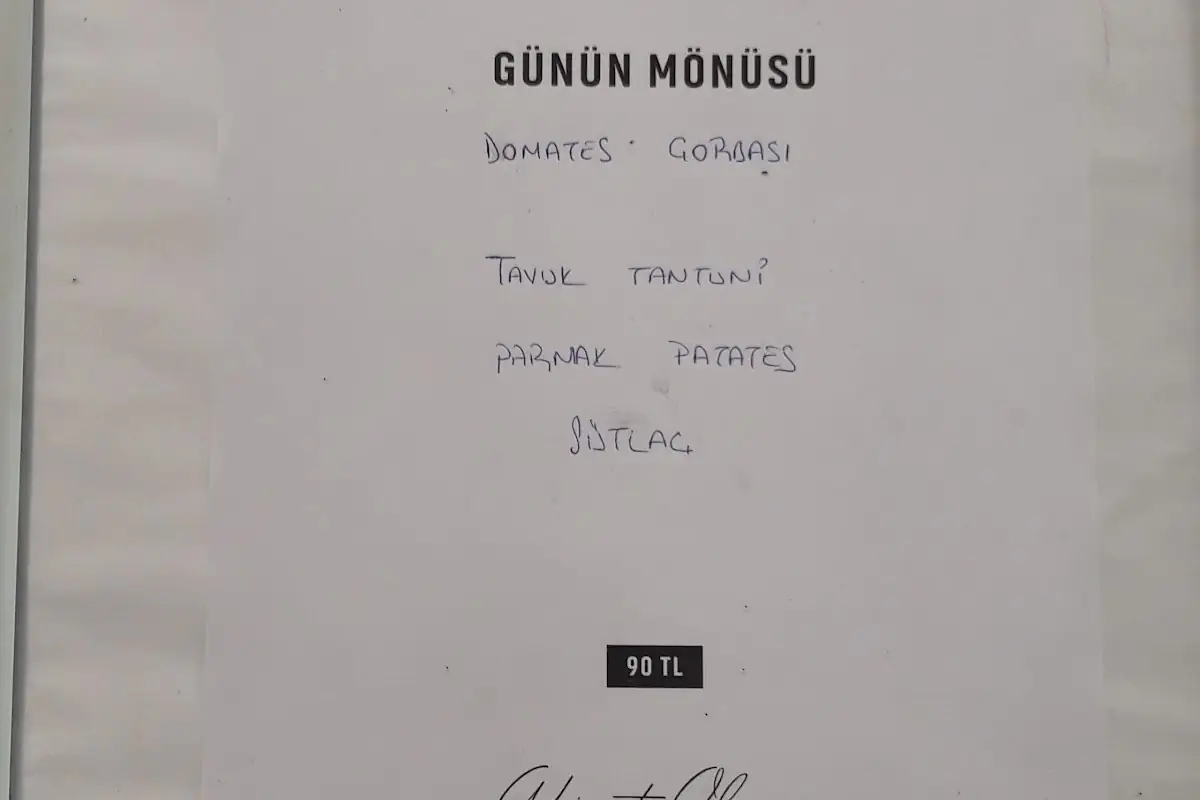 GÜNÜN MÖNÜSÜ
DOMATES GORBAŞI
TAVUK TANTUNİ
PARMAK PATATES
SÜTLAÇ
90 TL